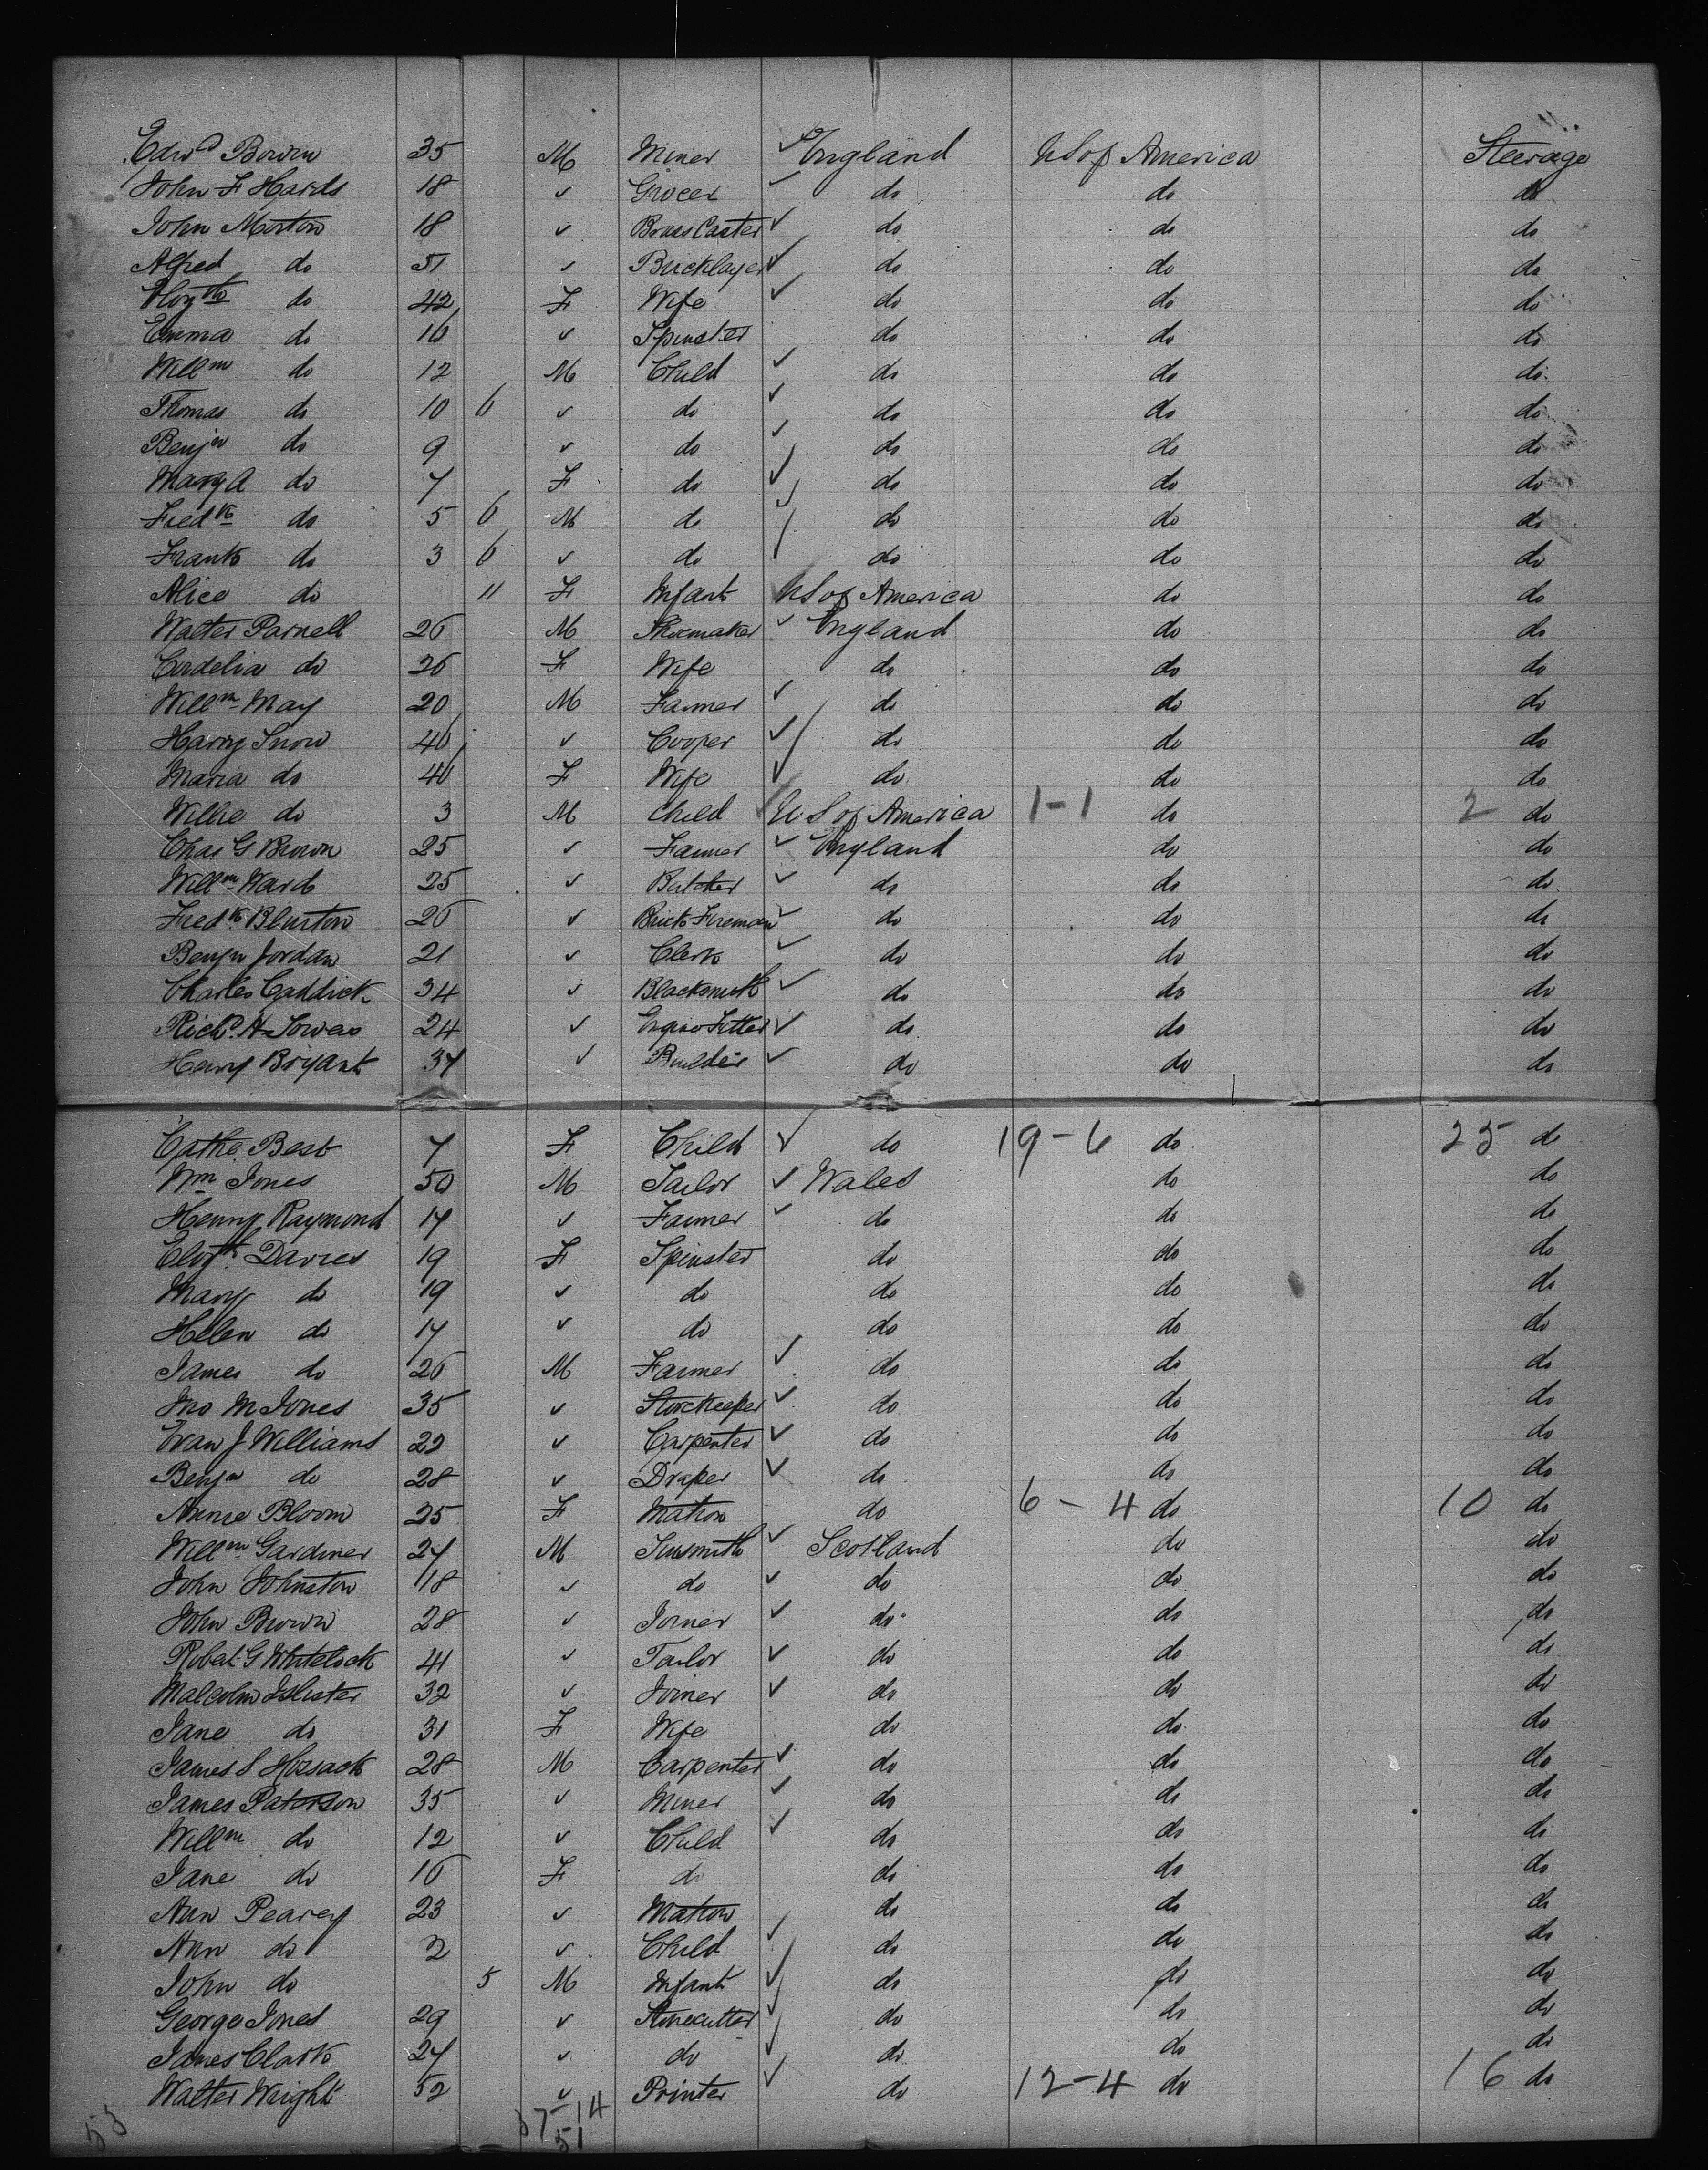 Edwd Bowen 35 M Miner ✓ England US of America Steerage
John F Hards 18 ✓ Grocer ✓ do do do
John Morton 18 ✓ Brass Caster ✓ do do do
Alfred do 51 ✓ Bricklayer ✓ do do do
do 42 F Wife ✓ do do do
Emma do 16 ✓ Spinster do do do
Willm do 12 M Child ✓ do do do
Thomas do 10 6 ✓ do ✓ do do do
Benjn do 9 ✓ do ✓ do do do
Mary A do 7 F do ✓ do do do
Fredk do 5 6 M do ✓ do do do
Frank do 3 6 ✓ do ✓ do do do
Alice do 11 F Infant US of America do do
Walter Parnell 26 M Shoemaker ✓ England do do
Cordelia do 26 F Wife do do do
Willm May 20 M Farmer ✓ do do do
Harry Snow 40 ✓ Cooper ✓ do do do
Maria do 40 F Wife ✓ do do do
Willie do 3 M Child ✓ US of America 1-1 do 2 do
Chas G Brown 25 ✓ Farmer ✓ England do do
Willm Ward 25 ✓ Butcher ✓ do do do
Fredk Blurton 26 ✓ Brick Fireman ✓ do do do
Benjn Jordan 21 ✓ Clerk ✓ do do do
Charles Caddick 34 ✓ Blacksmith ✓ do do do
Richd H Sowers 24 ✓ Engine Fitter ✓ do do do
Henry Bryant 37 ✓ Builder ✓ do do do
Cathe Best 7 F Child ✓ do 19-6 do 25 do
Wm Jones 50 M Tailor ✓ Wales do do
Henry Raymond 17 ✓ Farmer ✓ do do do
Elizth Davies 19 F Spinster do do do
Mary do 19 ✓ do do do do
Helen do 17 ✓ do do do do
James do 26 M Farmer ✓ do do do
Jno M Jones 35 ✓ Storekeeper ✓ do do do
Evan J Williams 29 ✓ Carpenter ✓ do do do
Benjn do 28 ✓ Draper ✓ do do do
Annie Bloom 25 F Matron do 6-4 do 10 do
Willm Gardiner 27 M Tinsmith ✓ Scotland do do
John Johnston 18 ✓ do ✓ do do do
John Brown 28 ✓ Joiner ✓ do do do
Robat G Whitelock 41 ✓ Tailor ✓ do do do
Malcolm Islister 32 ✓ Joiner ✓ do do do
Jane do 31 F Wife do do do
James S Hossack 28 M Carpenter ✓ do do do
James Paterson 35 ✓ Miner ✓ do do do
Willm do 12 ✓ Child ✓ do do do
Jane do 10 F do do do do
Ann Pearey 23 ✓ Matron do do do
Ann do 2 ✓ Child ✓ do do do
John do 5 M Infant ✓ do do do
George Jones 29 ✓ Stonecutter ✓ do do do
James Clark 27 ✓ do ✓ do do do
Walter Wright 52 ✓ Printer ✓ do 12-4 do 16 do
53 37-14
51